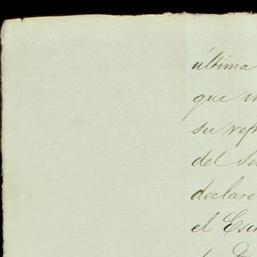 última
que
su rep
del Se
declare
el Esc